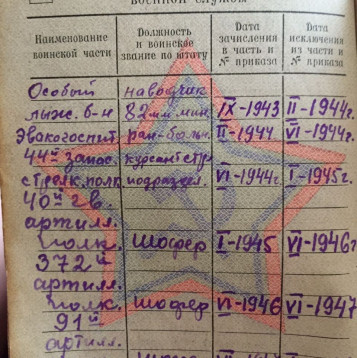 военной службы
Наименование воинской части | Должность и воинское звание по штату | Дата зачисления в часть и № приказа | Дата исключения из части и № приказа
Особый наводчик
лыж. б-н 82 мм мин. IX-1943 II-1944г.
Эвакогоспит. ран-больн. II-1944 VI-1944г.
44й запас. курсант стр.
стрелк. полк. подраздел. VI-1944г. I-1945г.
40й гв.
артилл.
полк. Шофер I-1945 VI-1946г
372й
артилл.
полк. Шофер VI-1946 VI-1947
91й
артилл.